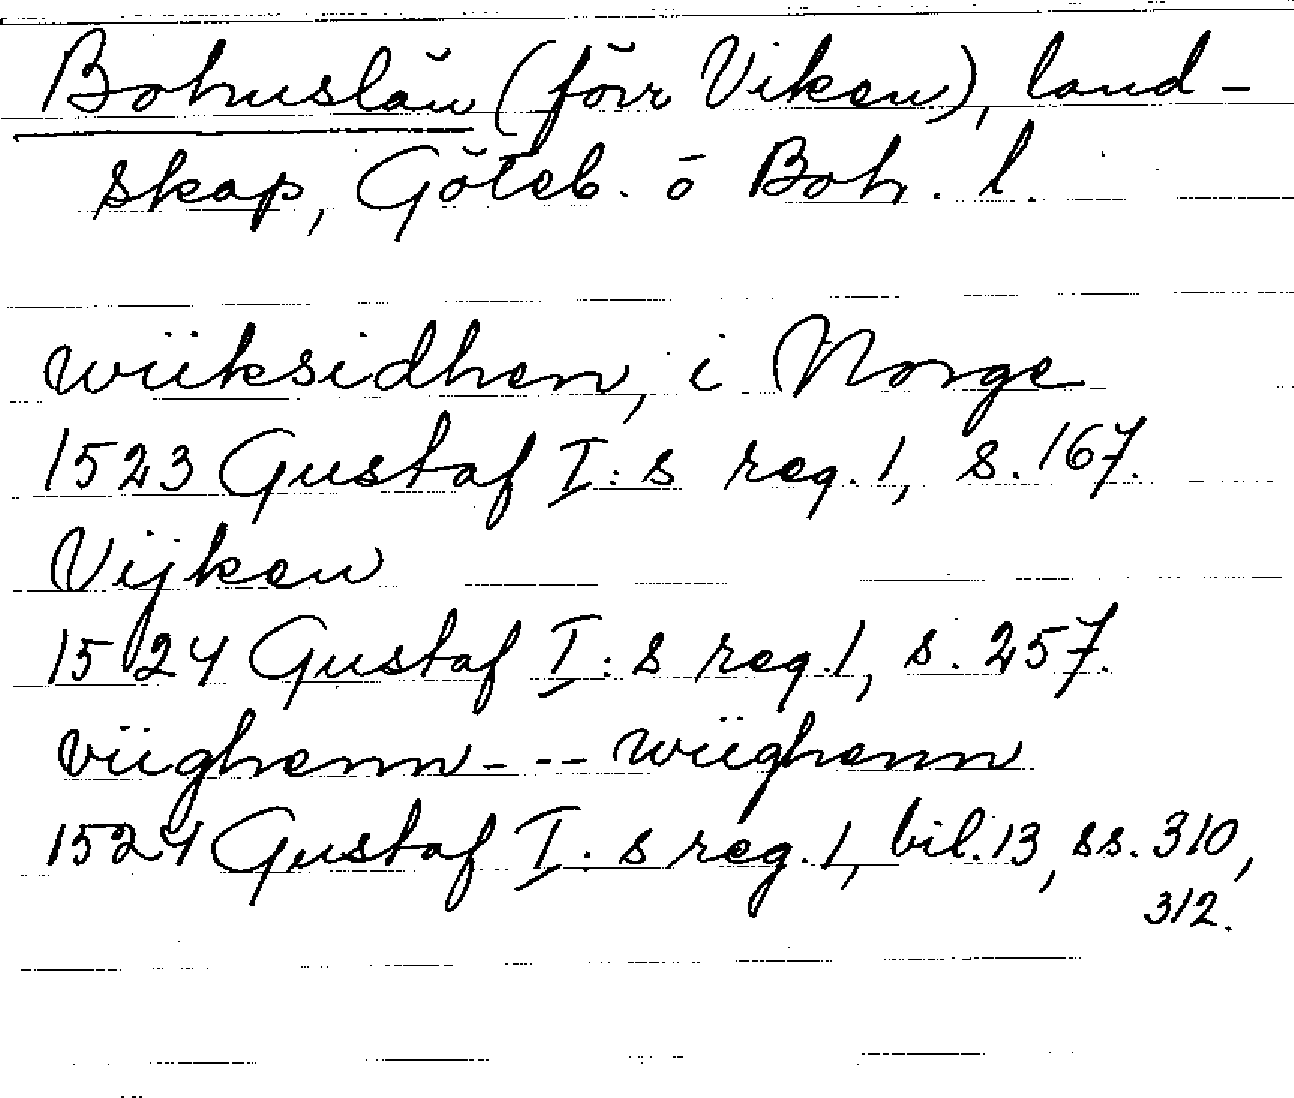 Bohuslän (förr Viken), land-
skap, Göteb. o Boh. l.
wiiksidhen, i Norge
1523 Gustaf I:s reg. 1, s. 167.
Vijken
1524 Gustaf I:s reg. 1, s. 257.
viighenn - - - wiighenn
1524 Gustaf I:s reg. 1, bil. 13, ss. 310,
312.